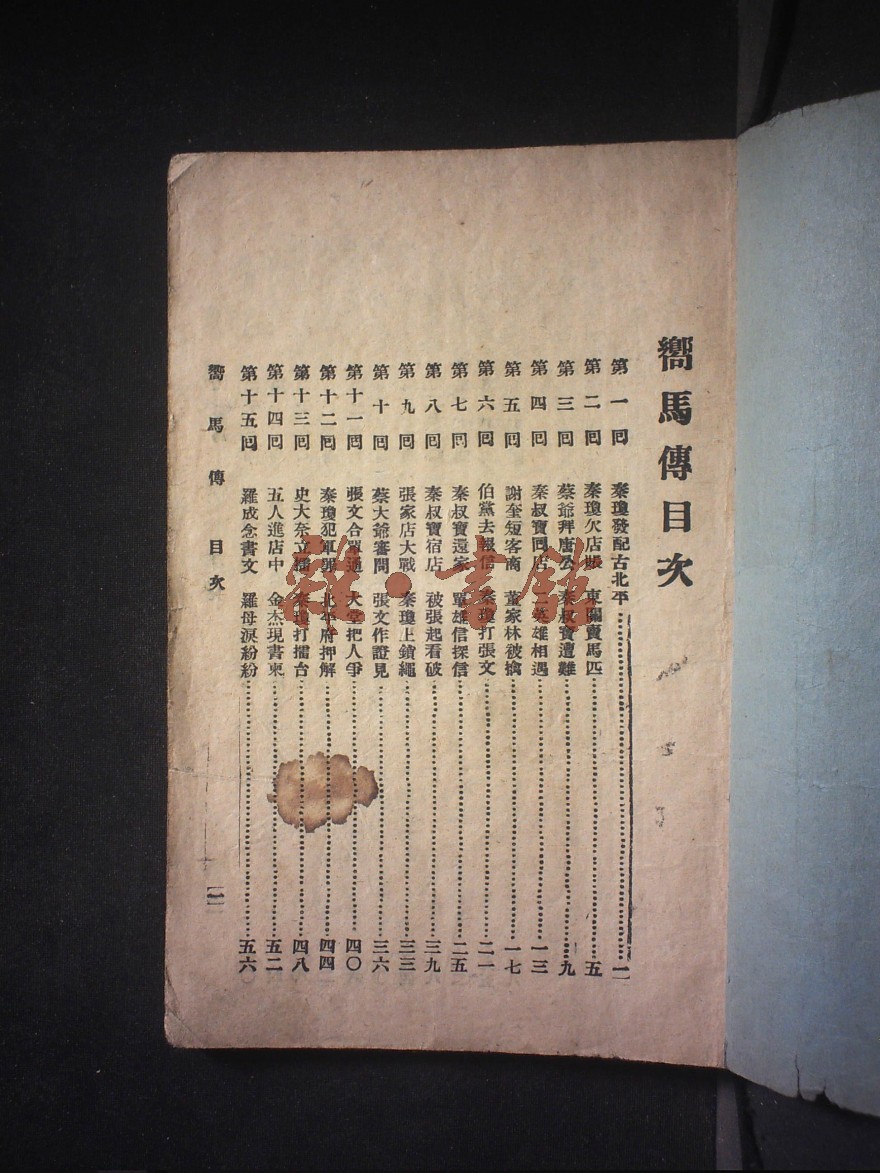 嚮馬傳目次
第一回 秦瓊發配古北平 一
第二回 秦瓊欠店賬 東關賣馬匹 五
第三回 蔡爺拜唐公 秦叔寶遭難 九
第四回 秦叔寶回店 二英雄相遇 一三
第五回 謝奎短客商 董家林被擒 一七
第六回 伯黨去報信 秦瓊打張文 二一
第七回 秦叔寶還家 單雄信探信 二五
第八回 秦叔寶宿店 被張起看破 三九
第九回 張家店大戰 秦瓊上鎖繩 三三
第十回 蔡大爺審問 張文作證見 三六
第十一回 張文合單通 大堂把人爭 四〇
第十二回 秦瓊犯軍罪 北平府押解 四四
第十三回 史大奈立擂 秦瓊打擂台 四八
第十四回 五人進店中 金杰現書柬 五二
第十五回 羅成念書文 羅母淚紛紛 五六
嚮馬傳 目次 一
雜·書館